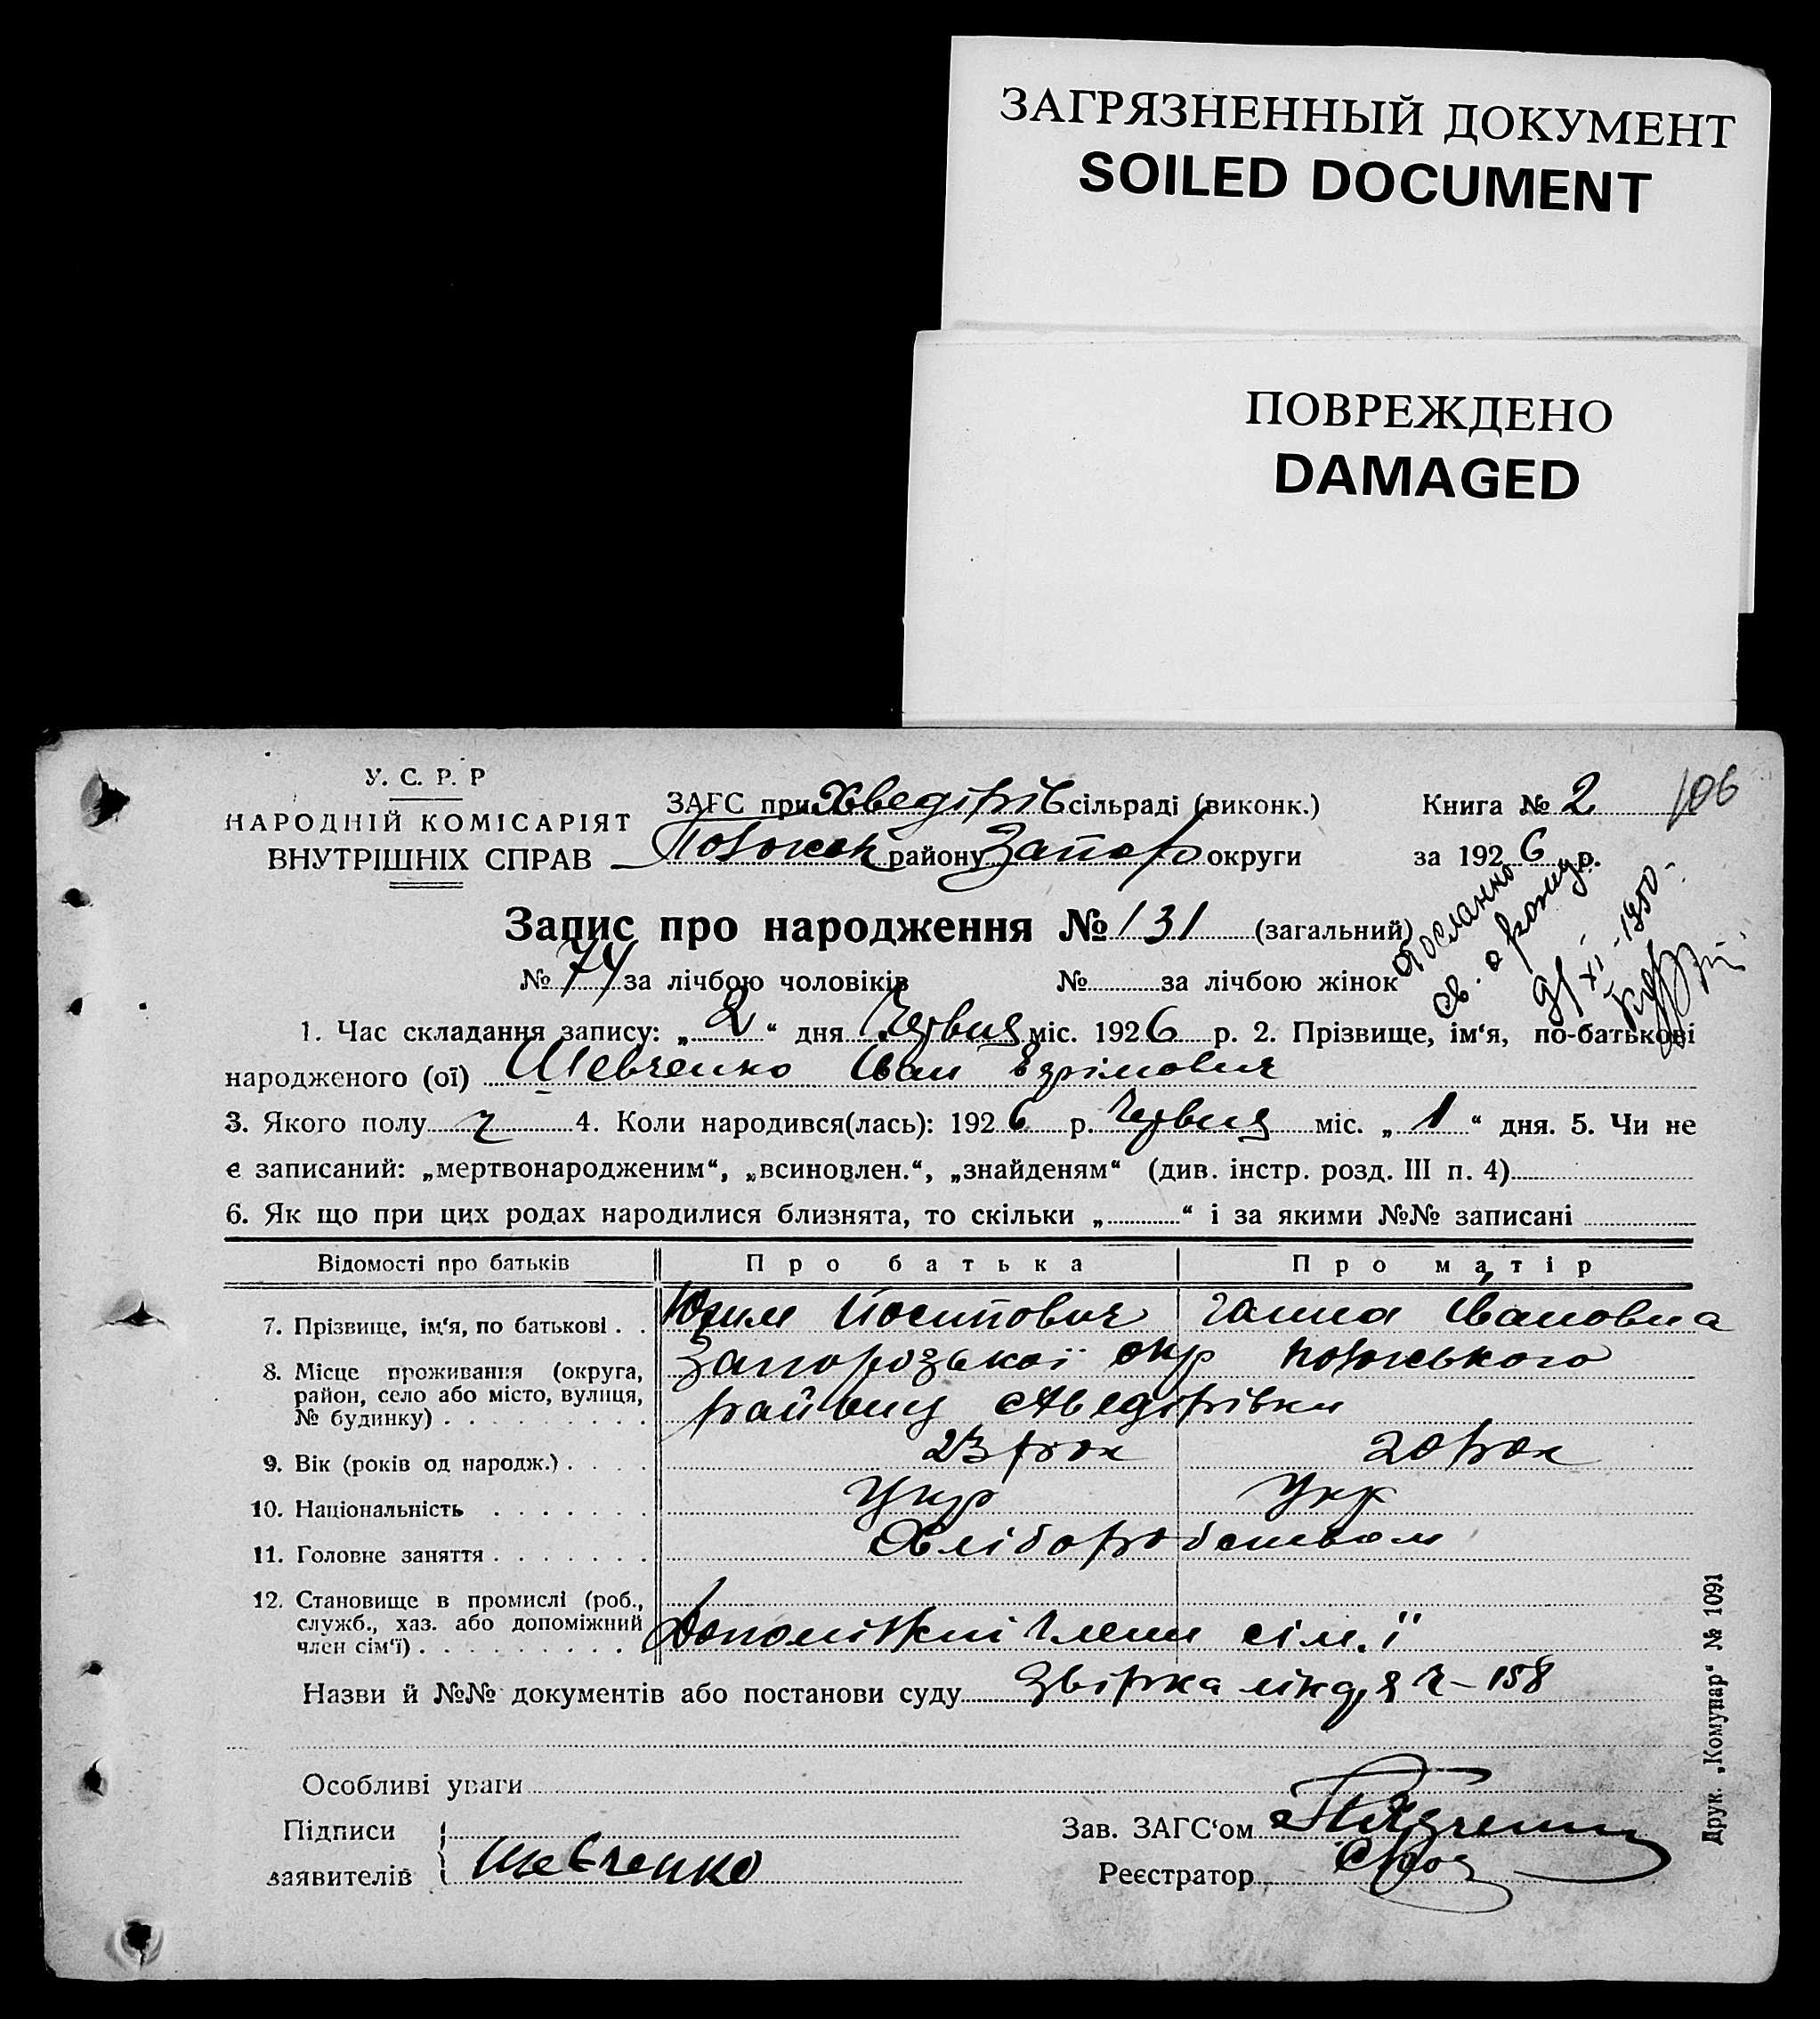 ЗАГРЯЗНЕННЫЙ ДОКУМЕНТ
SOILED DOCUMENT
ПОВРЕЖДЕНО
DAMAGED
106
У. С. Р. Р
НАРОДНІЙ КОМІСАРІЯТ
ВНУТРІШНІХ СПРАВ
ЗАГС при Хведірів сільраді (виконк.) Книга № 2
району Запор округи за 1926 р.
Запис про народження № 131 (загальний)
№ 74 за лічбою чоловіків № за лічбою жінок
1. Час складання запису: „2“ дня Червня міс. 1926 р. 2. Прізвище, ім‘я, по-батькові
народженого (ої) Шевченко Іван
3. Якого полу ч 4. Коли народився(лась): 1926 р. Червня міс. „1“ дня. 5. Чи не
є записаний: „мертвонародженим“, „всиновлен.“, „знайденям“ (див. інстр. розд. III п. 4)
6. Як що при цих родах народилися близнята, то скільки „ “ і за якими №№ записані
Відомості про батьків Про батька Про матір
7. Прізвище, ім‘я, по батькові . . Юхим Йосипович Ганна Івановна
8. Місце проживання (округа, Запорозької окр
район, село або місто, вулиця,
№ будинку) . . . . . . . . .
9. Вік (років од народж.) . . . . 23 рок 20 рок
10. Національність . . . . . . . Укр Укр
11. Головне заняття . . . . . . . Хліборобством
12. Становище в промислі (роб.,
служб., хаз. або допоміжний
член сім‘ї) . . . . . . . . . Допоміжні члени сім.ї
Назви й №№ документів або постанови суду Звірка 158
Особливі уваги
Підписи
заявителів Шевченко
Зав. ЗАГС‘ом
Реєстратор
Друк. „Комунар“ № 1091